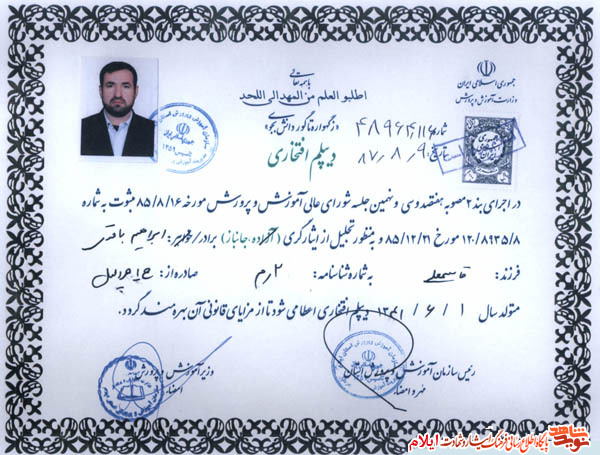 باسمه تعالی
اطلبو العلم من المهد الی اللحد
«ز گهواره تا گور دانش بجوی»
دیپلم افتخاری
جمهوری اسلامی ایران
وزارت آموزش و پرورش
شماره
تاریخ ۸۷،۸،۹
در اجرای بند ۲ مصوبه هفتصد و سی و نهمین جلسه شورای عالی آموزش و پرورش مورخه ۸۵/۸/۱۶ مثبوت به شماره
۱۲۰/۸۹۳۵/۸ مورخ ۸۵/۱۲/۲۱ و به منظور تجلیل از ایثارگری (آزاده، جانباز) برادر/خواهر: ابراهیم
فرزند: قاسمعلی به شماره شناسنامه: ۲ رم صادره از:
متولد سال ۱/ ۶ / ۱۳۴۱ دیپلم افتخاری اعطا می شود تا از مزایای قانونی آن بهره مند گردد.
رئیس سازمان آموزش و پرورش استان
مهر و امضاء
وزیر آموزش و پرورش
امضاء
پایگاه اطلاع رسانی فرهنگ ایثار و شهادت ایلام
نوید شاهد